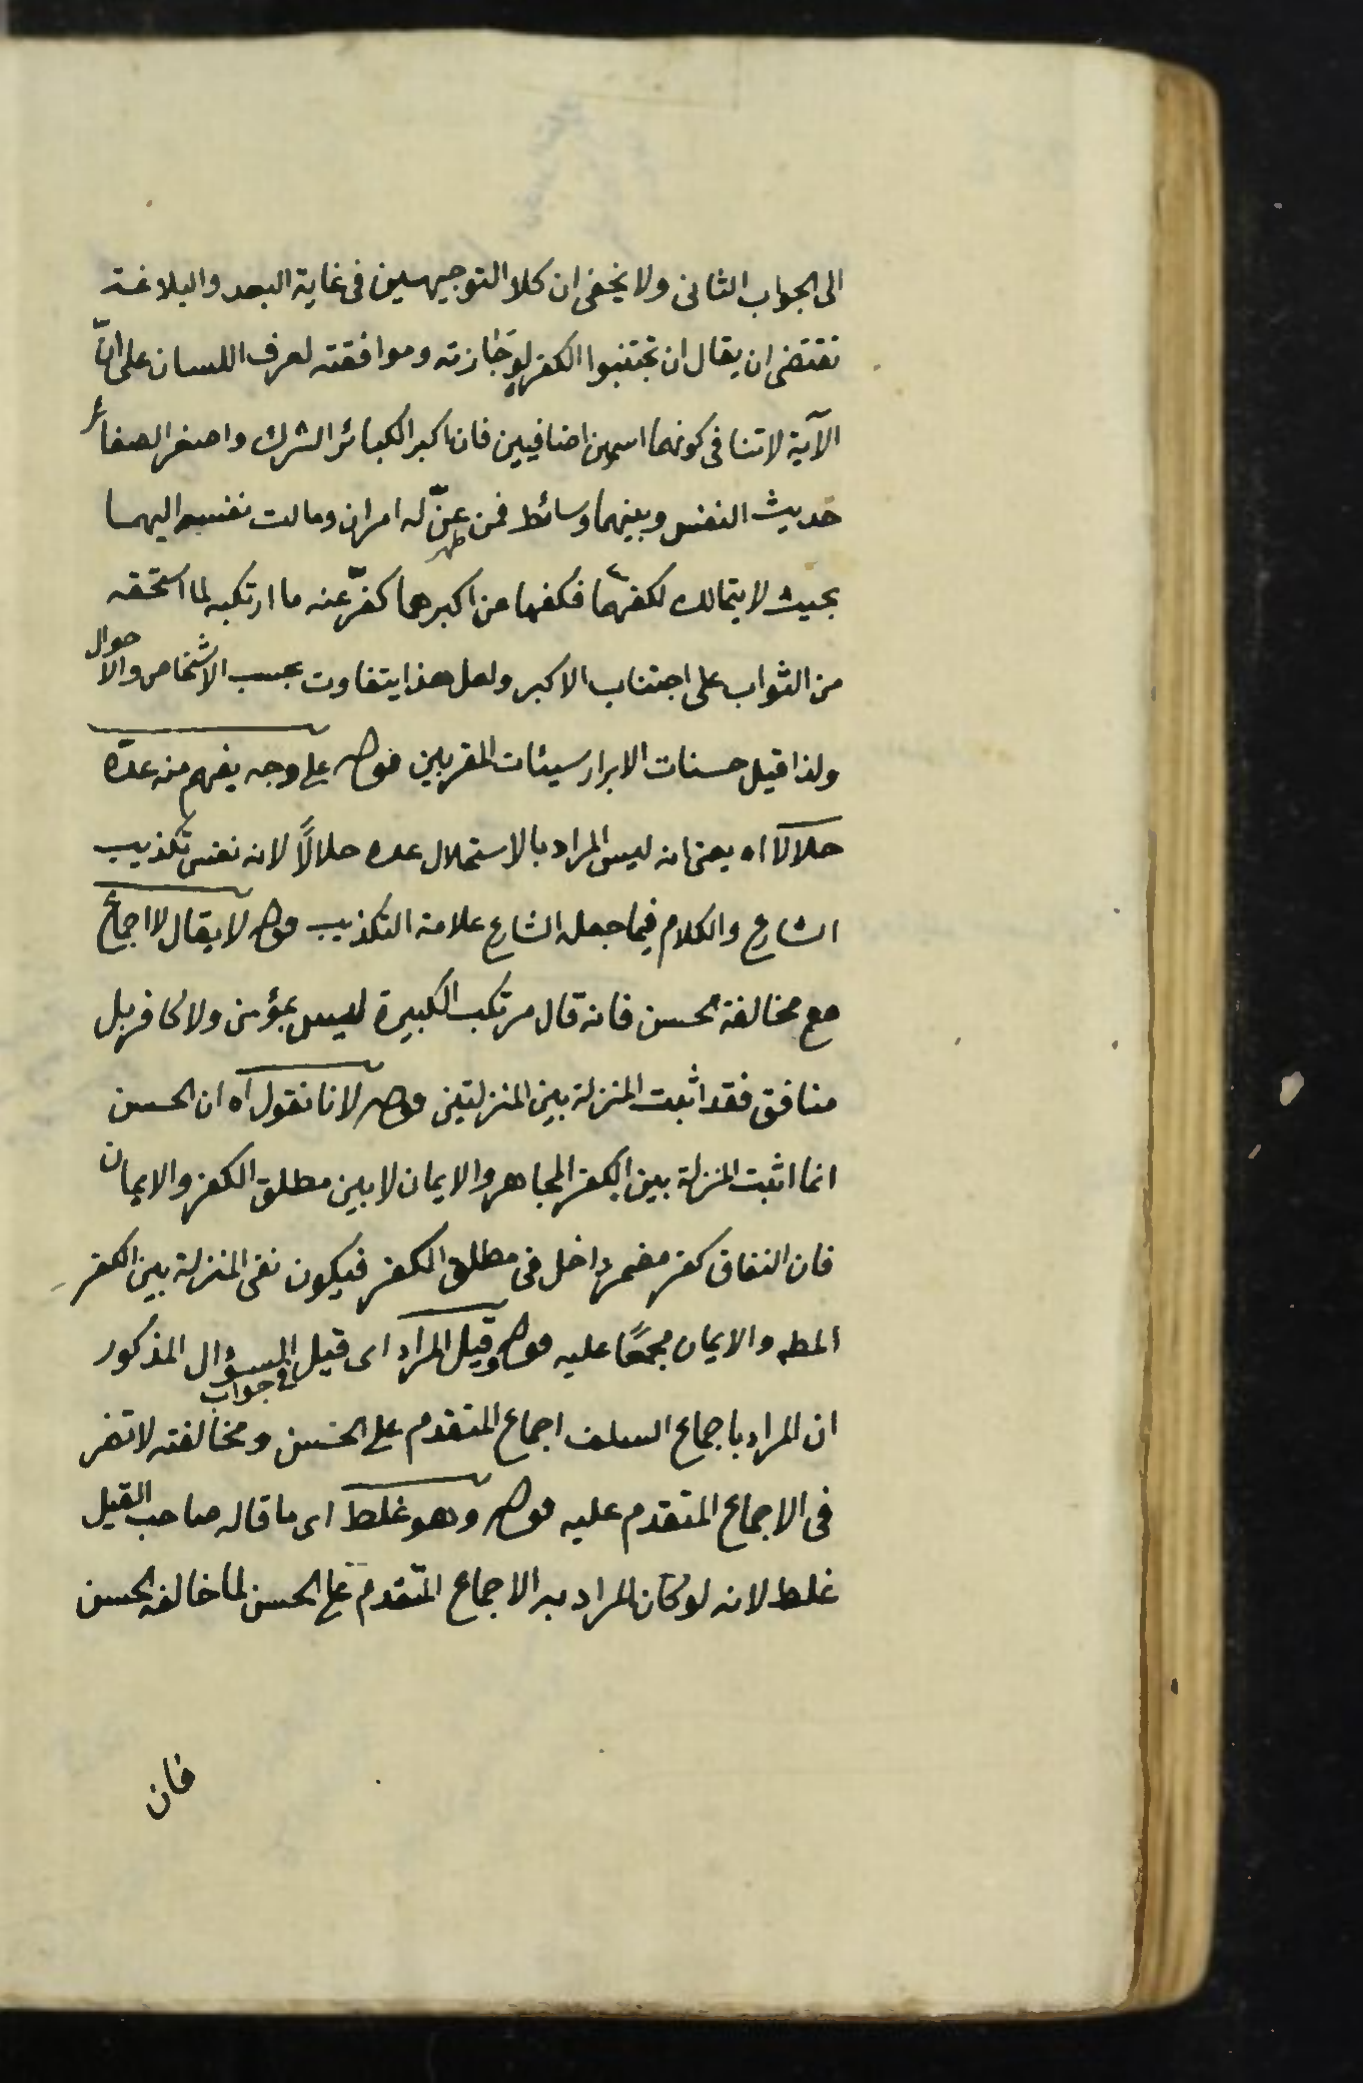 الى الجواب الثانى ولا يخفى ان كلا التوجيهين فى غاية البعد والبلاغة
تقتضى ان يقال ان تجتنبوا الكفر لوجازته وموافقته لعرف اللسان على انّ
الآية لا تنافى كونهما اسمين اضافيين فان اكبر الكبائر الشرك واصغر الصغائر
حديث النفس وبينهما وسائط فمن عنّ له امران ومالت نفسه اليهما
ظهر
بحيث لا يتمالك لكفهما فكفها عن اكبرهما كفّر عنه ما ارتكبه لما استحقه
من الثواب على اجتناب الاكبر ولعل هذا يتفاوت بحسب الاشخاص والاحوال
ولذا قيل حسنات الابرار سيئات المقربين قوله على وجه يفهم منه عدّه
حلالا اه يعنى انه ليس المراد بالاستحلال عده حلالاً لانه نفس تكذيب
الشارع والكلام فيما جعله الشارع علامة التكذيب قوله لا يقال لا اجماع
مع مخالفة الحسن فانه قال مرتكب الكبيرة ليس بمؤمن ولا كافر بل
منافق فقد اثبت المنزلة بين المنزلتين قوله لانا نقول اه ان الحسن
انما اثبت المنزلة بين الكفر المجاهر والايمان لا بين مطلق الكفر والايمان
فان النفاق كفر مضمر داخل فى مطلق الكفر فيكون نفى المنزلة بين الكفر
المطـ والايمان مجمعًا عليه قوله وقيل المراد اى قيل فى جواب السؤال المذكور
ان المراد باجماع السلف اجماع المتقدم على الحسن ومخالفته لا تضر
فى الاجماع المتقدم عليه قوله وهو غلط اى ما قاله صاحب القيل
غلط لانه لو كان المراد به الاجماع المتقدم على الحسن لما خالفه الحسن
فان